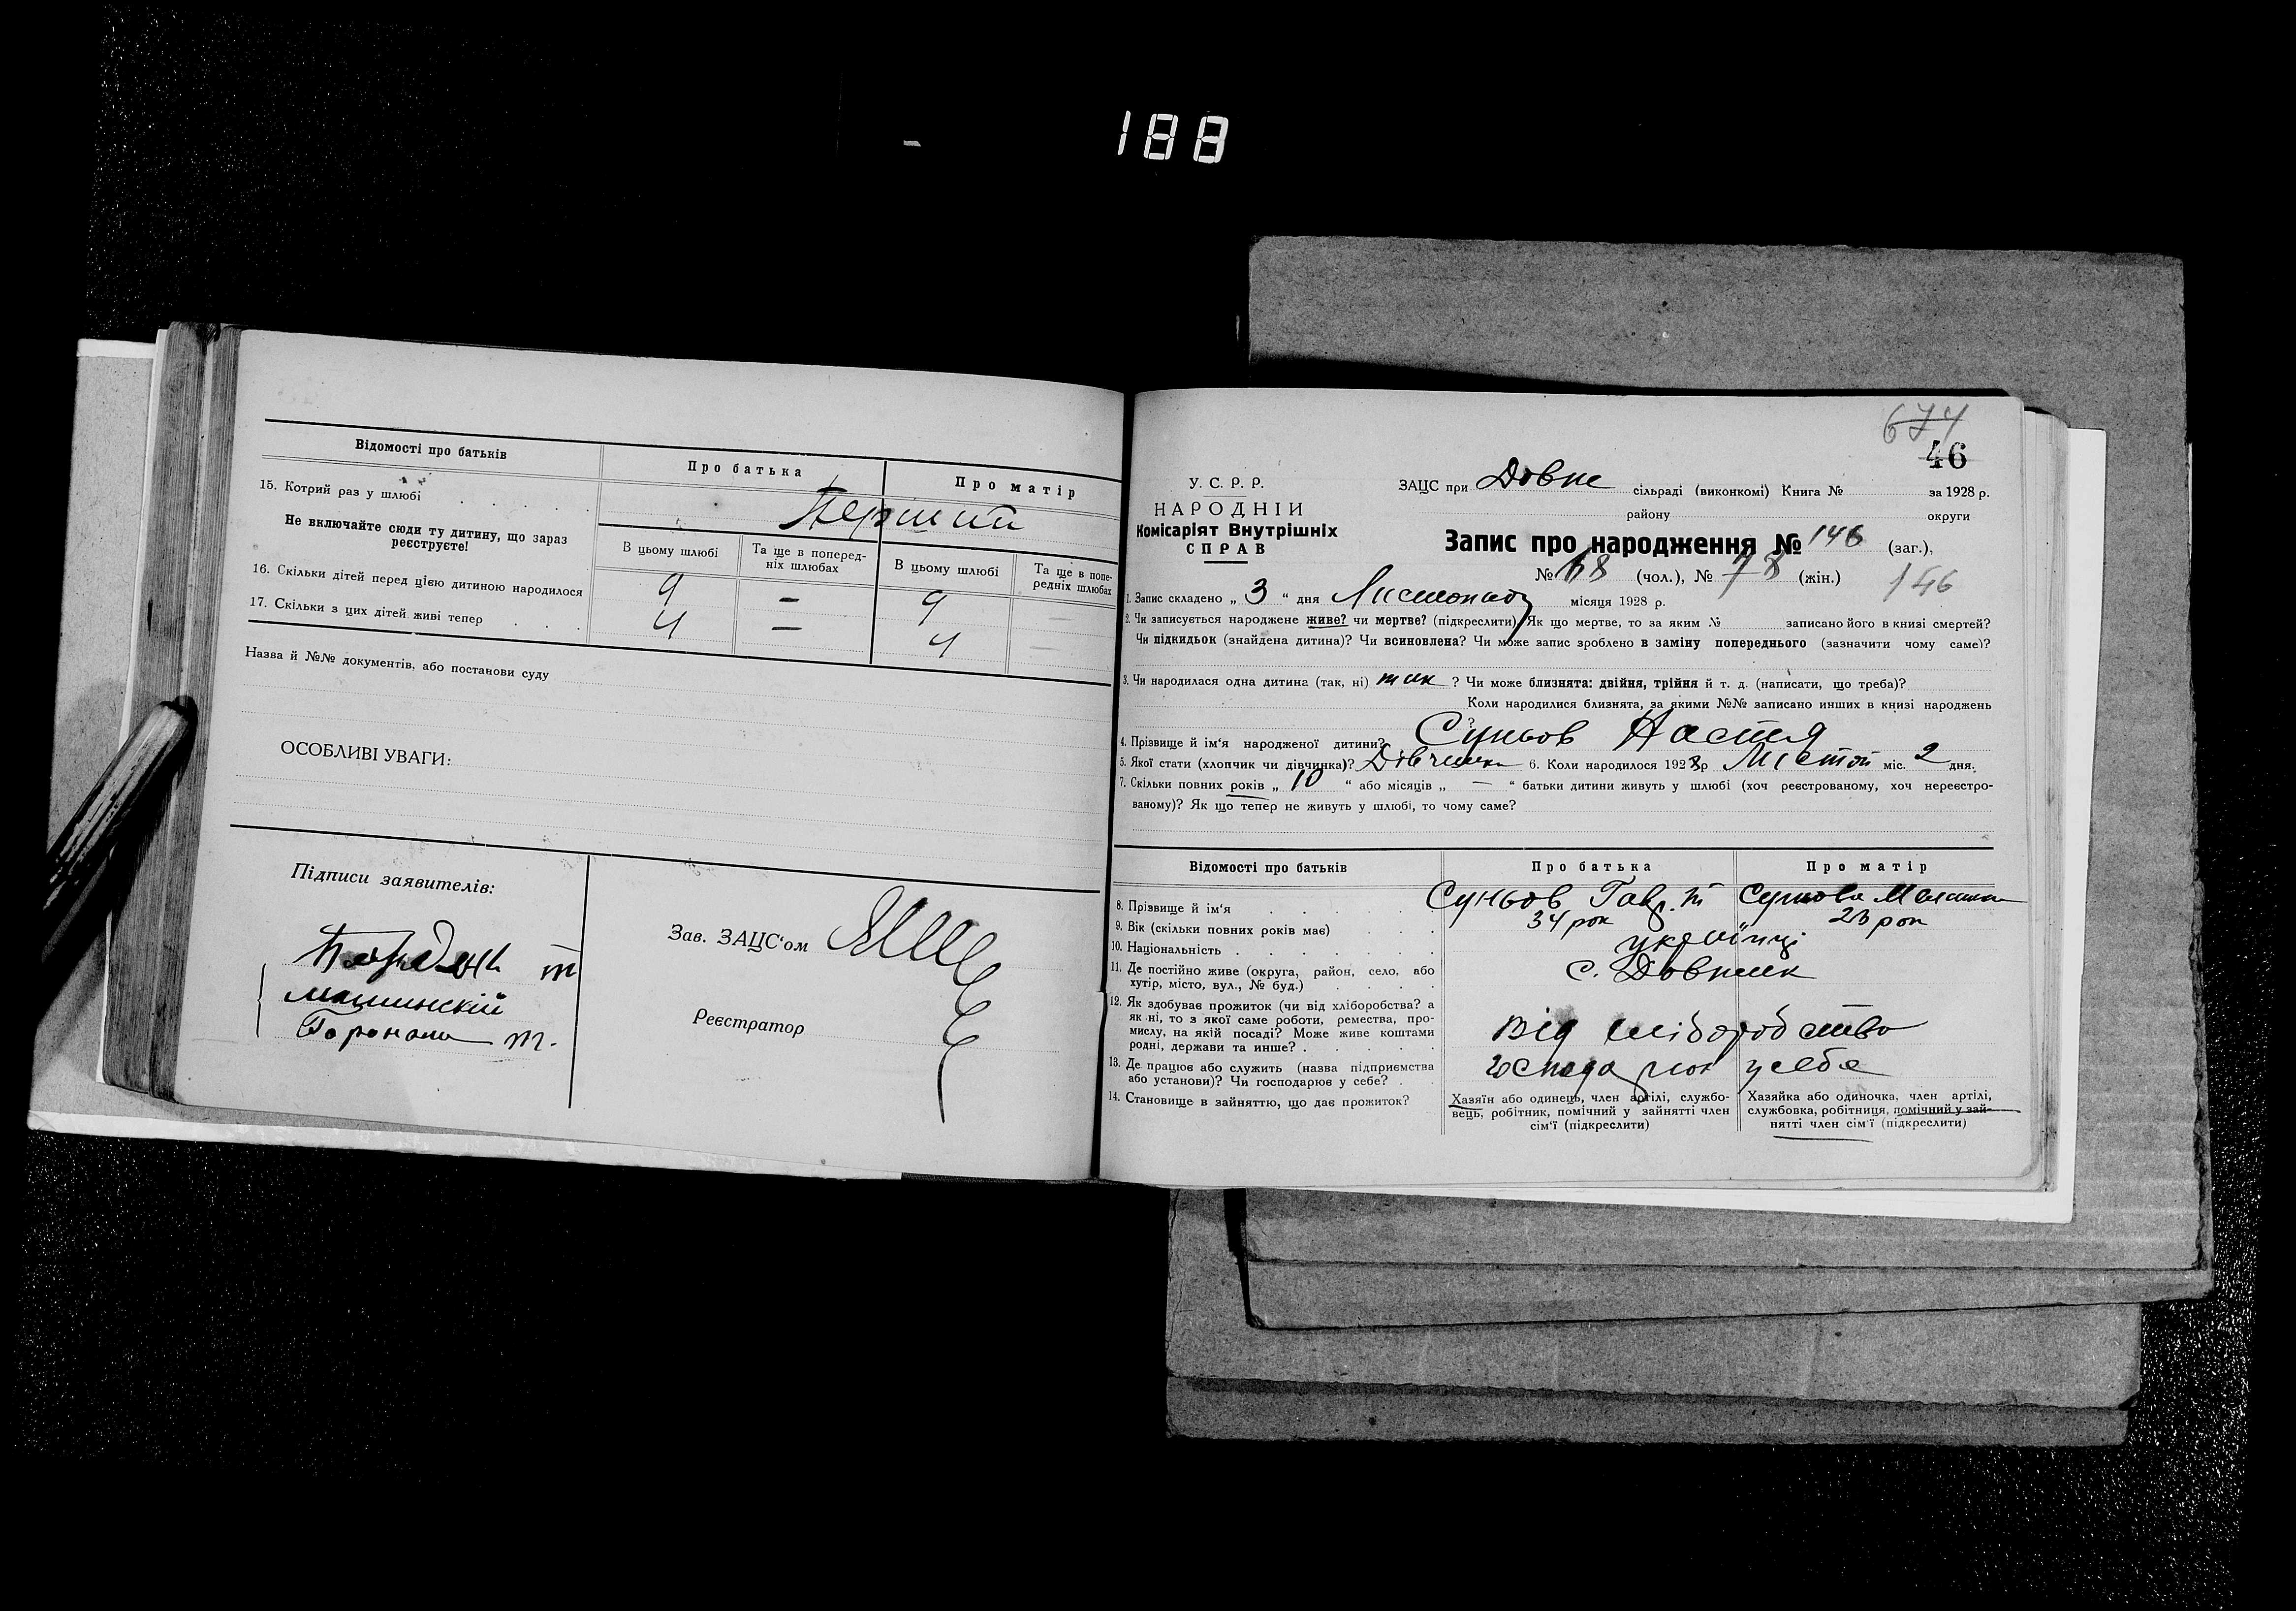 188
Відомості про батьків
Про батька
Про матір
15. Котрий раз у шлюбі
Перший
Не включайте сюди ту дитину, що зараз
реєструєте!
В цьому шлюбі
Та ще в поперед-
ніх шлюбах
В цьому шлюбі
Та ще в попе-
редніх шлюбах
16. Скільки дітей перед цією дитиною народилося
9 — 9 —
17. Скільки з цих дітей живі тепер
4 — 4 —
Назва й №№ документів, або постанови суду
ОСОБЛИВІ УВАГИ:
Підписи заявителів:
Зав. ЗАЦС'ом
Реєстратор
674
46
У. С. Р. Р.
НАРОДНІЙ
Комісаріят Внутрішніх
СПРАВ
ЗАЦС при Довпе сільраді (виконкомі) Книга № за 1928 р.
району округи
Запис про народження № 146 (заг.),
№ 68 (чол.), № 78 (жін.) 146
1. Запис складено „ 3 “ дня Листопад місяця 1928 р.
2. Чи записується народжене живе? чи мертве? (підкреслити) Як що мертве, то за яким № записано його в книзі смертей?
Чи підкидьок (знайдена дитина)? Чи всиновлена? Чи може запис зроблено в заміну попереднього (зазначити чому саме)?
3. Чи народилася одна дитина (так, ні) так ? Чи може близнята: двійня, трійня й т. д. (написати, що треба)?
Коли народилися близнята, за якими №№ записано инших в книзі народжень
?
4. Прізвище й ім'я народженої дитини? Суньов Настя
5. Якої стати (хлопчик чи дівчинка)? Дівчинка 6. Коли народилося 1928 р. міс. 2 дня.
7. Скільки повних років „ 10 “ або місяців „ — “ батьки дитини живуть у шлюбі (хоч реєстрованому, хоч нереєстро-
ваному)? Як що тепер не живуть у шлюбі, то чому саме?
Відомості про батьків
Про батька
Про матір
8. Прізвище й ім'я
Суньов Гавр.
9. Вік (скільки повних років має)
34 рок
23 рок
10. Національність
українці
11. Де постійно живе (округа, район, село, або
хутір, місто, вул., № буд.)
с. Довпик
12. Як здобуває прожиток (чи від хліборобства? а
як ні, то з якої саме роботи, ремества, про-
мислу, на якій посаді? Може живе коштами
родні, держави та инше?
Від хліборобства
13. Де працює або служить (назва підприємства
або установи)? Чи господарює у себе?
у себе
14. Становище в зайняттю, що дає прожиток?
Хазяїн або одинець, член артілі, службо-
вець, робітник, помічний у зайнятті член
сім'ї (підкреслити)
Хазяйка або одиночка, член артілі,
службовка, робітниця, помічний у зай-
нятті член сім'ї (підкреслити)